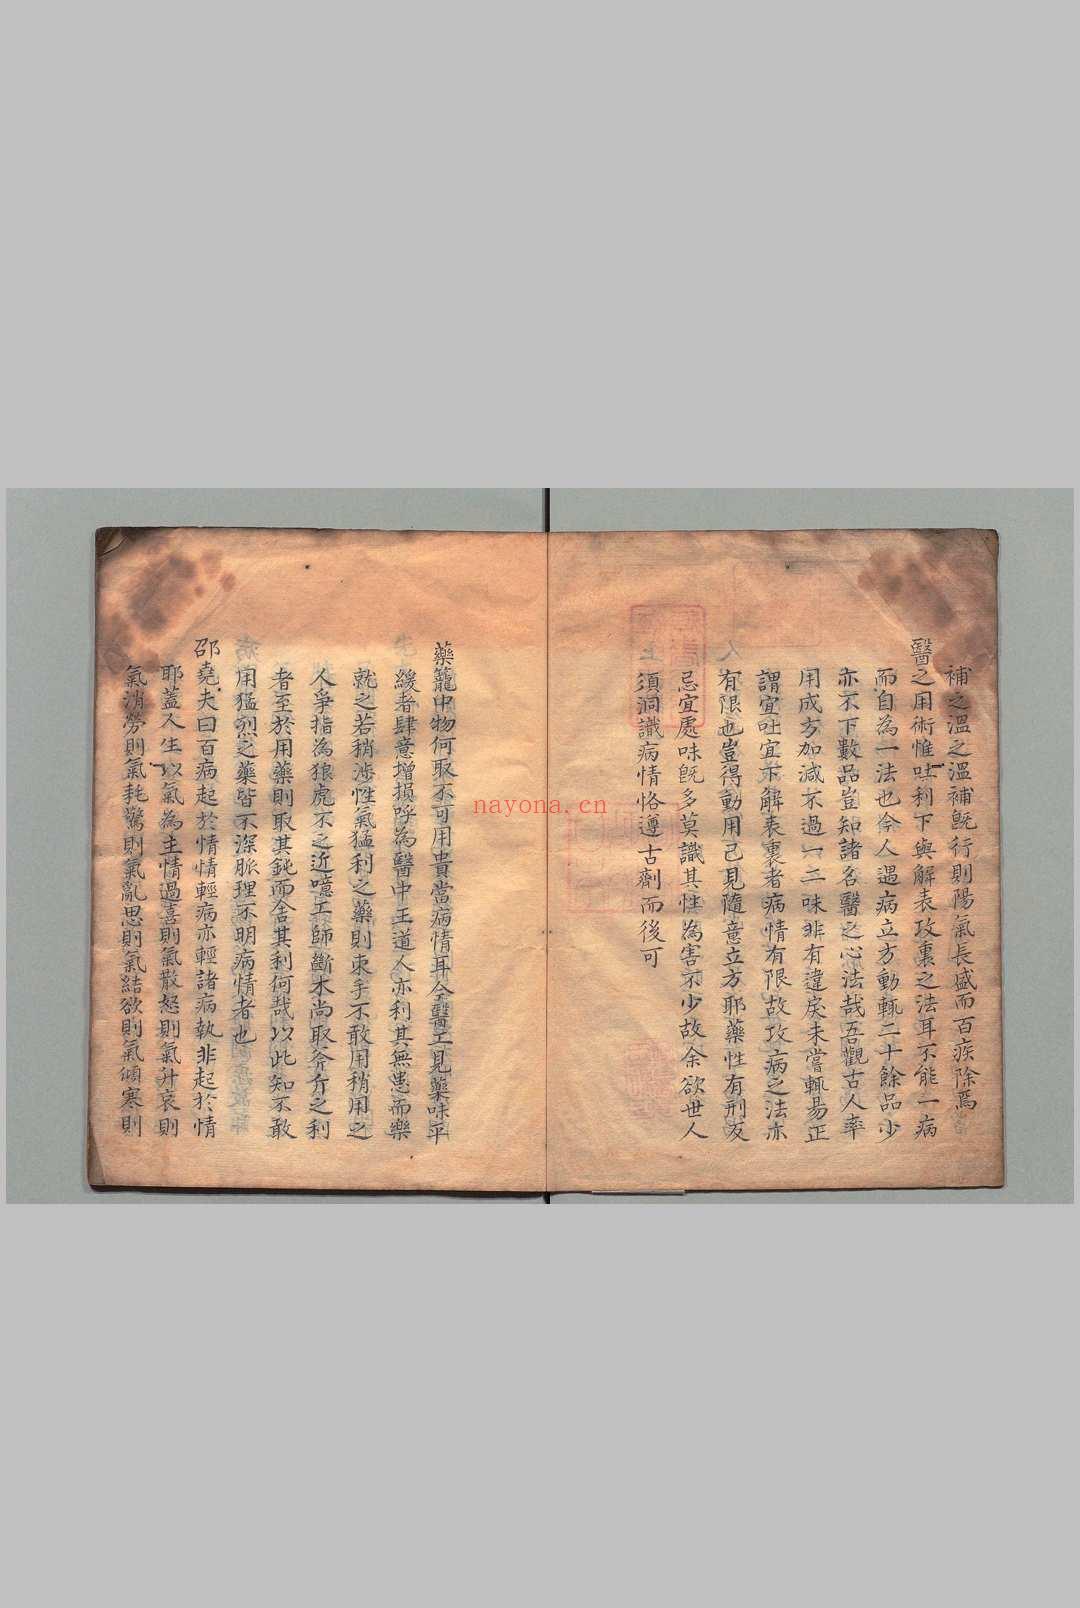 補之溫之溫補旣行則陽氣長盛而百疾除焉
醫之用術惟吐利下與解表攻裏之法耳不能一病
而自為一法也今人遇病立方動輒二十餘品少
亦不下數品豈知諸名醫之心法哉吾觀古人率
用成方加減不過一二味非有違戾未嘗輒易正
謂宜吐宜下解表裏者病情有限故攻病之法亦
有限也豈得動用己見隨意立方耶藥性有刑反
忌宜處味旣多莫識其性為害不少故余欲世人
須洞識病情恪遵古劑而後可
藥籠中物何取不可用貴當病情耳今醫工見藥味平
緩者肆意增損呼為醫中王道人亦利其無患而樂
就之若稍涉性氣猛利之藥則束手不敢用稍用之
人爭指為狼虎不之近噫工師斷木尚取斧斤之利
者至於用藥則取其鈍而舍其利何哉以此知不敢
用猛烈之藥皆不深脈理不明病情者也
邵堯夫曰百病起於情情輕病亦輕諸病孰非起於情
耶蓋人生以氣為主情過喜則氣散怒則氣升哀則
氣消勞則氣耗驚則氣亂思則氣結欲則氣傾寒則
nayona.cn